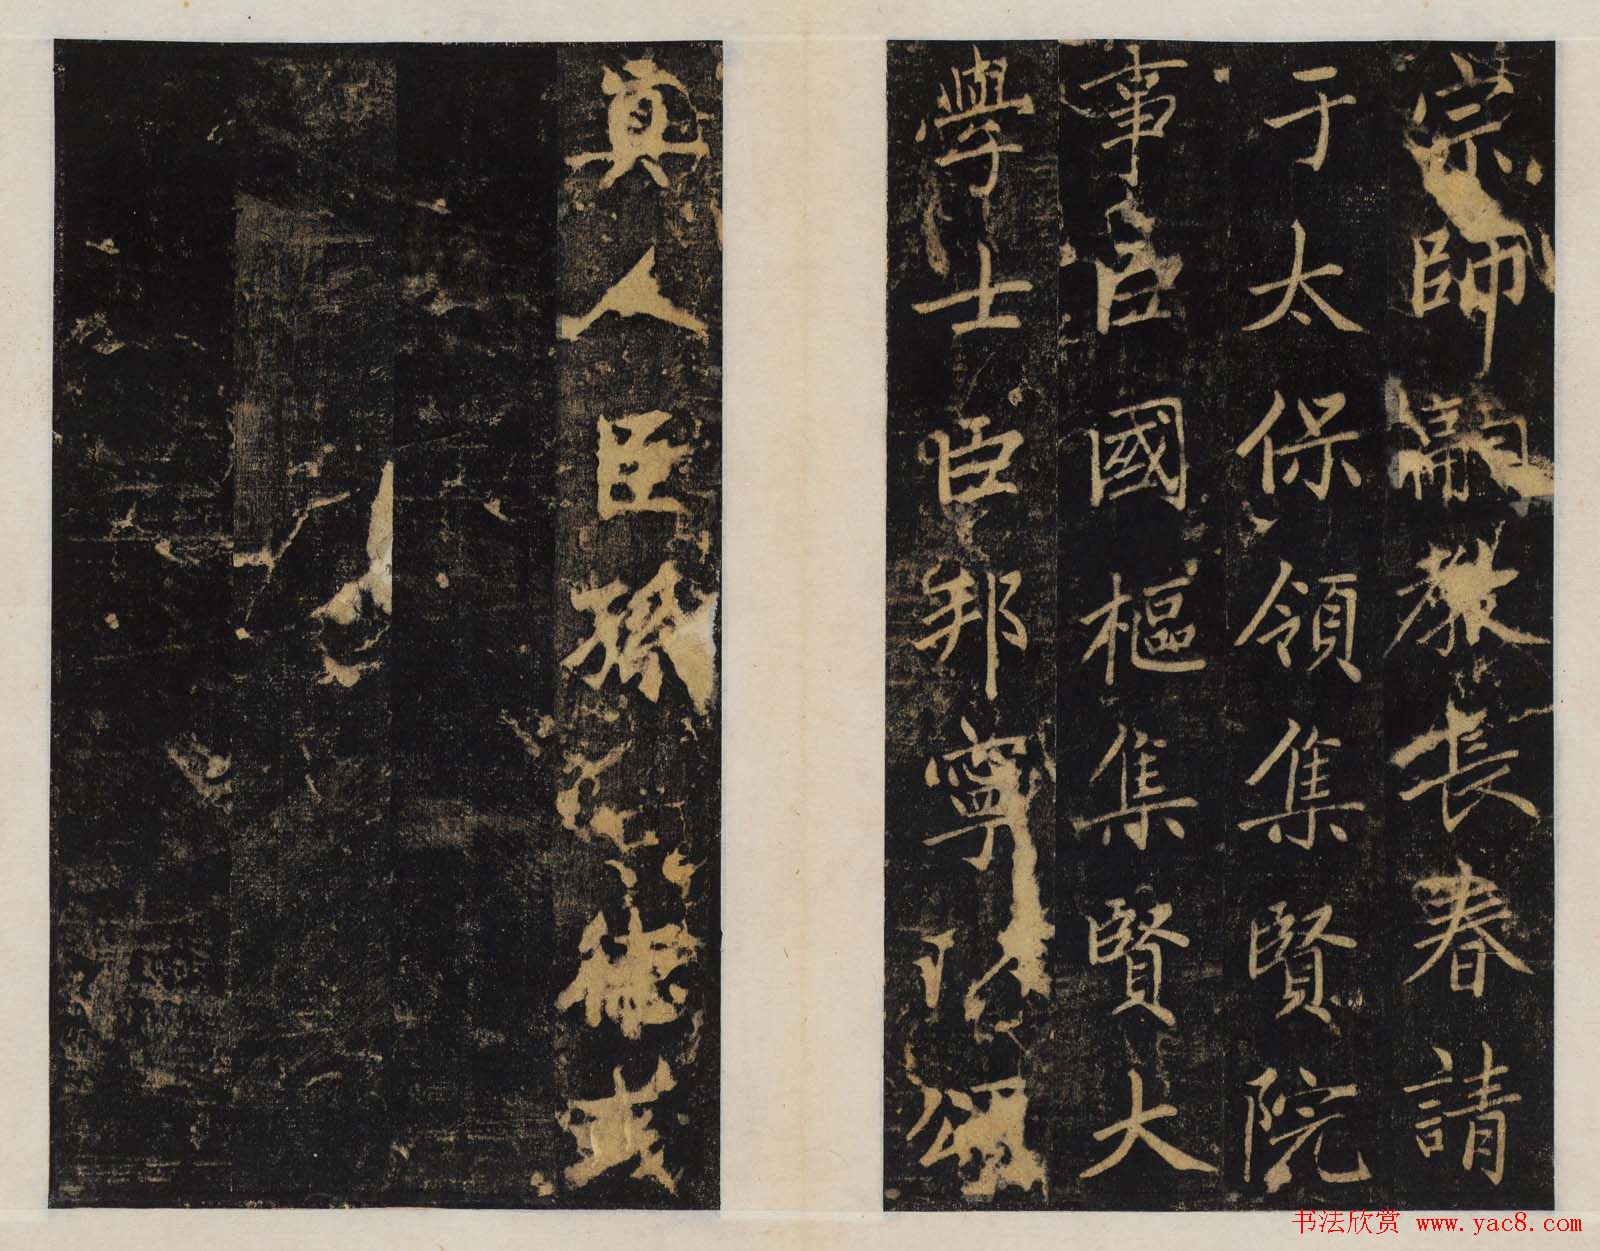 宗師嗣教長春請
于太保領集賢院
事臣國樞集賢大
學士臣邦寧
真人臣孫德彧
书法欣赏 www.yac8.com